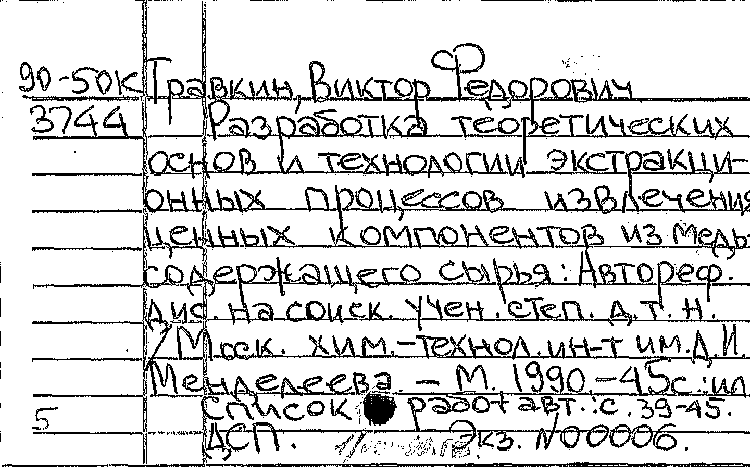 90-50к Травкин, Виктор Федорович
3744 Разработка теоретических
основ и технологии экстракци-
онных процессов извлечения
ценных компонентов из медь-
содержащего сырья: Автореф.
дис. на соиск. учен. степ. д.т.н.
/Моск. хим.-технол. ин-т им. Д.И.
Менделеева. – М. 1990.-45с.:ил
5 Список работ авт.: с. 39-45.
ДСП. Экз. №00006.